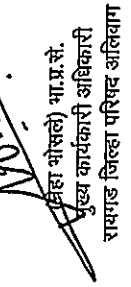 (नेहा भोसले) भा.प्र.से.
मुख्य कार्यकारी अधिकारी
रायगड जिल्हा परिषद अलिबाग